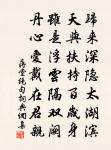 歸來深隱太湖濱
天與扶持百歲身
雖是浮雲隔雙闕
丹心愛戴在君親